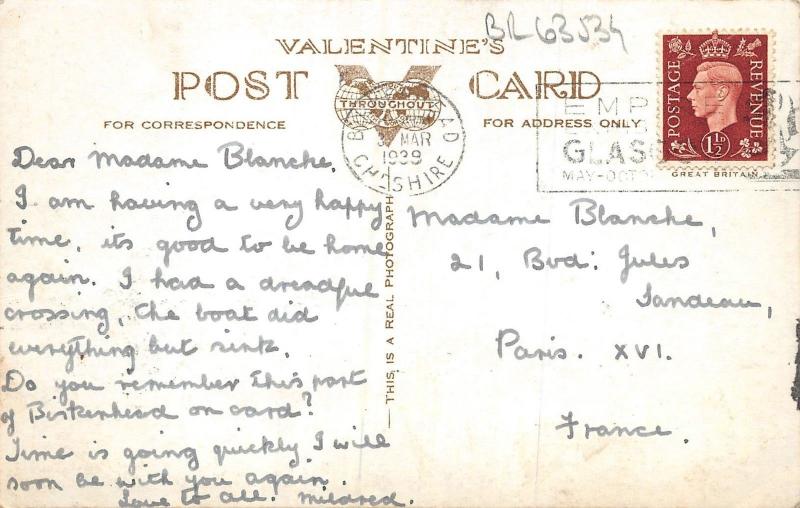 BR63534
VALENTINE'S
POST CARD
THROUGHOUT
FOR CORRESPONDENCE
FOR ADDRESS ONLY
MAR
1939
CHESHIRE
EMP
GLAS
MAY-OCT
POSTAGE
REVENUE
1½D
GREAT BRITAIN
Dear Madame Blanche,
I am having a very happy
time, its good to be home
again. I had a dreadful
crossing, the boat did
everything but sink.
Do you remember this part
of Birkenhead on card?
Time is going quickly. I will
soon be with you again.
Love to all. Mildred.
THIS IS A REAL PHOTOGRAPH
Madame Blanche,
21, Bvd: Jules
Sandeau,
Paris. XVI.
France.